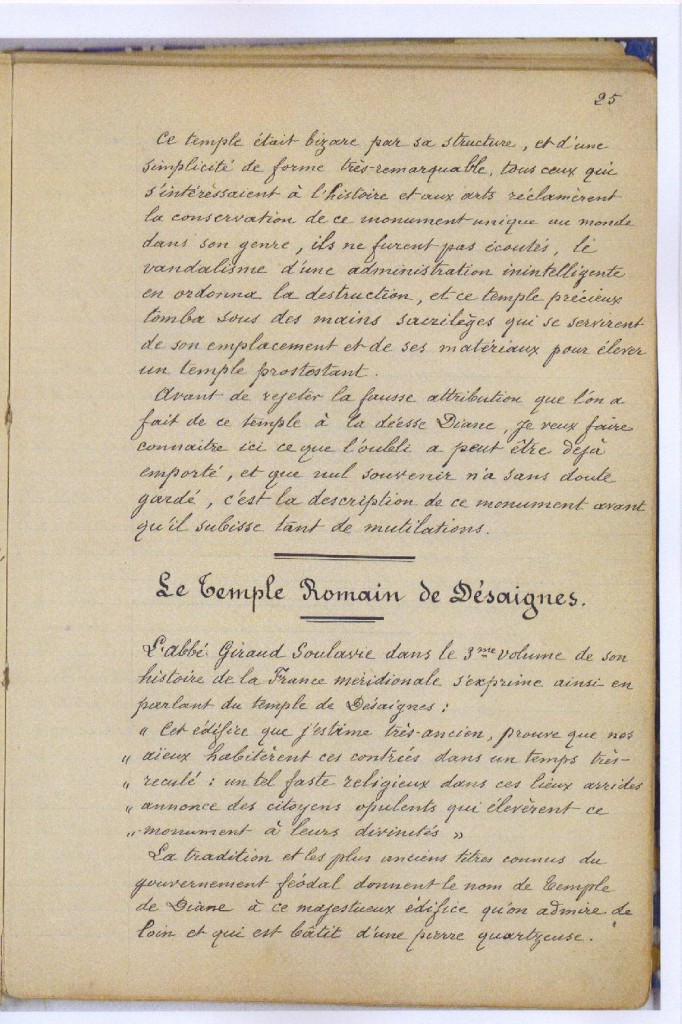 25
Ce temple était bizare par sa structure, et d'une
simplicité de forme très-remarquable, tous ceux qui
s'intérèssaient à l'histoire et aux arts réclamèrent
la conservation de ce monument unique au monde
dans son genre, ils ne furent pas écoutés, le
vandalisme d'une administration inintelligente
en ordonna la destruction, et ce temple précieux
tomba sous des mains sacrilèges qui se servirent
de son emplacement et de ses matériaux pour élever
un temple prostestant.
Avant de rejeter la fausse attribution que l'on a
fait de ce temple à la déesse Diane, je veux faire
connaitre ici ce que l'oubli a peut être dejà
emporté, et que nul souvenir n'a sans doute
gardé, c'est la description de ce monument avant
qu'il subisse tant de mutilations.
Le Temple Romain de Désaignes.
L'abbé Giraud Soulavie dans le 3me volume de son
histoire de la France meridionale s'exprime ainsi en
parlant du temple de Désaignes :
" Cet édifice que j'estime très-ancien, prouve que nos
" aïeux habitèrent ces contrées dans un temps très-
" reculé : un tel faste religieux dans ces lieux arrides
" annonce des citoyens opulents qui élevèrent ce
" monument à leurs divinités »
La tradition et les plus anciens titres connus du
gouvernement féodal donnent le nom de Temple
de Diane à ce majestueux édifice qu'on admire de
loin et qui est bâtit d'une pierre quartzeuse.